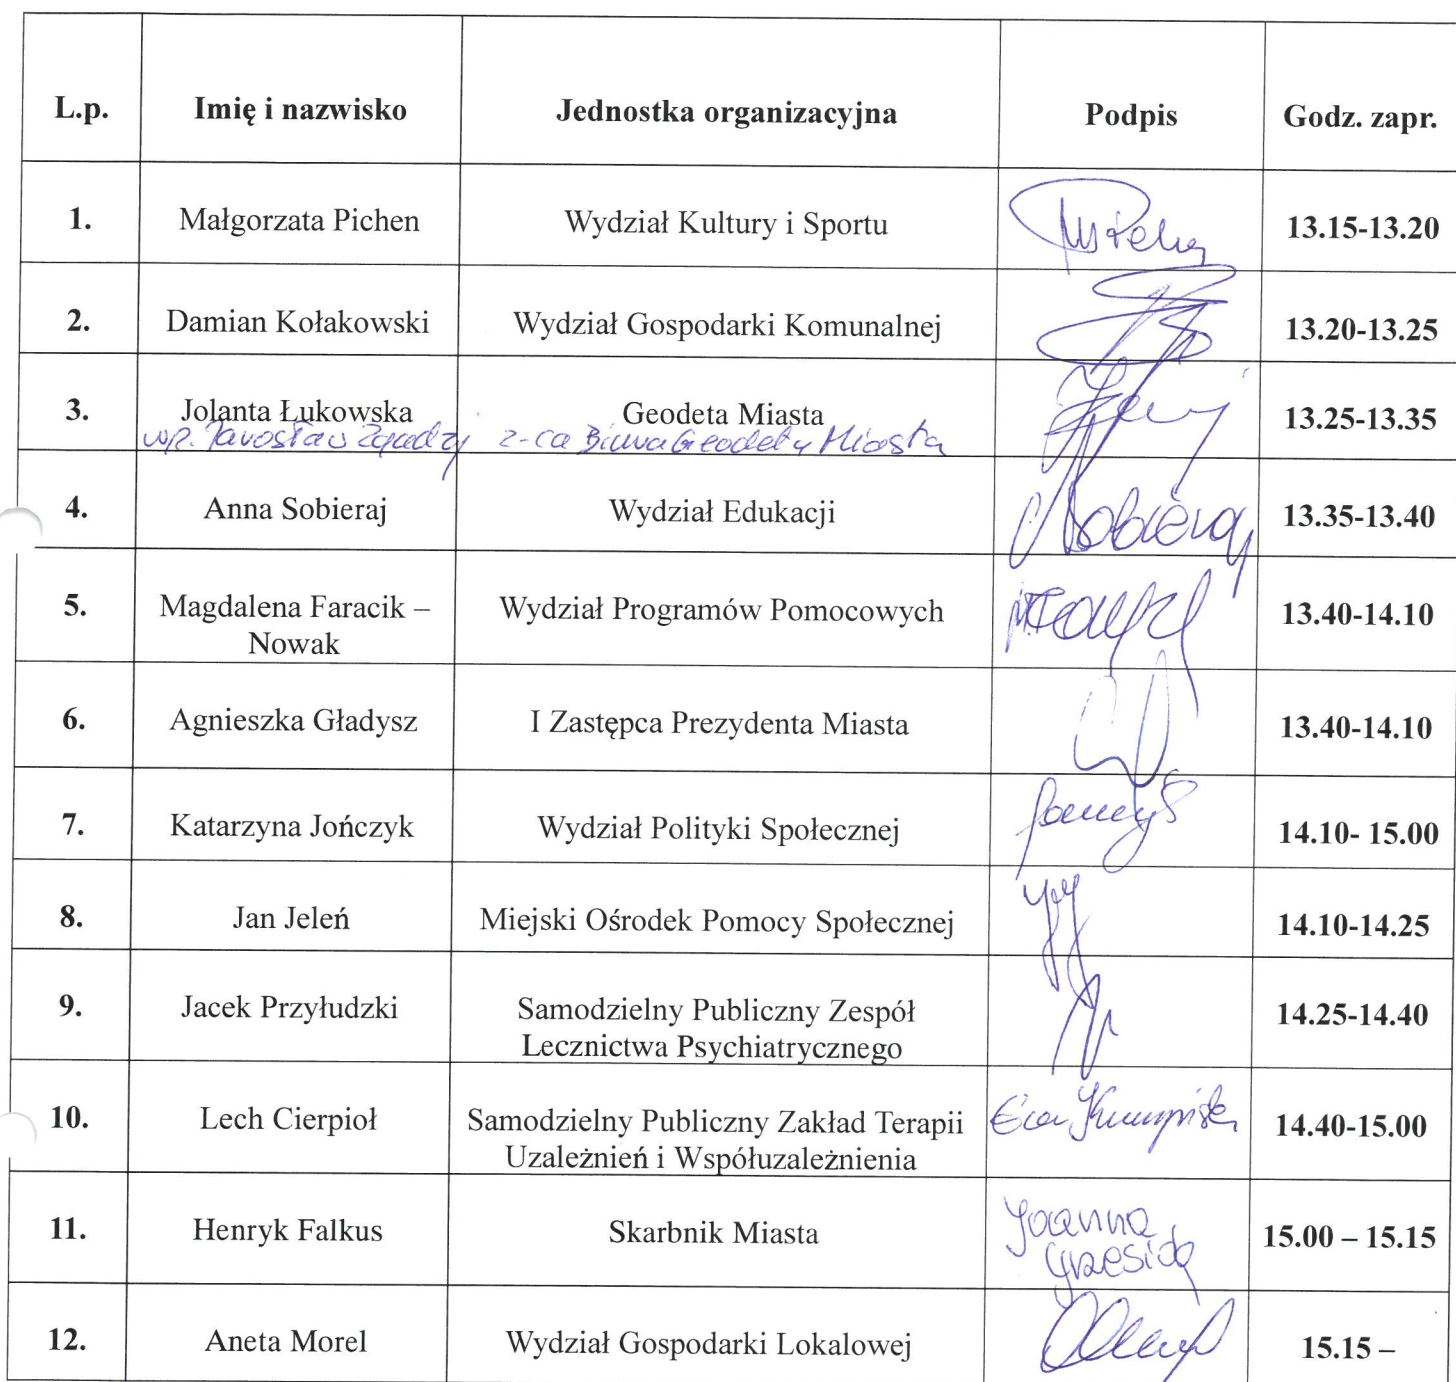 L.p. Imię i nazwisko Jednostka organizacyjna Podpis Godz. zapr.
1. Małgorzata Pichen Wydział Kultury i Sportu 13.15-13.20
2. Damian Kołakowski Wydział Gospodarki Komunalnej 13.20-13.25
3. Jolanta Łukowska Geodeta Miasta 13.25-13.35
Jarosław z-ca Biura Geodety Miasta
4. Anna Sobieraj Wydział Edukacji Sobieraj 13.35-13.40
5. Magdalena Faracik – Wydział Programów Pomocowych 13.40-14.10
Nowak
6. Agnieszka Gładysz I Zastępca Prezydenta Miasta 13.40-14.10
7. Katarzyna Jończyk Wydział Polityki Społecznej 14.10- 15.00
8. Jan Jeleń Miejski Ośrodek Pomocy Społecznej 14.10-14.25
9. Jacek Przyłudzki Samodzielny Publiczny Zespół 14.25-14.40
Lecznictwa Psychiatrycznego
10. Lech Cierpioł Samodzielny Publiczny Zakład Terapii Ewa 14.40-15.00
Uzależnień i Współuzależnienia
11. Henryk Falkus Skarbnik Miasta Joanna 15.00 – 15.15
12. Aneta Morel Wydział Gospodarki Lokalowej 15.15 –